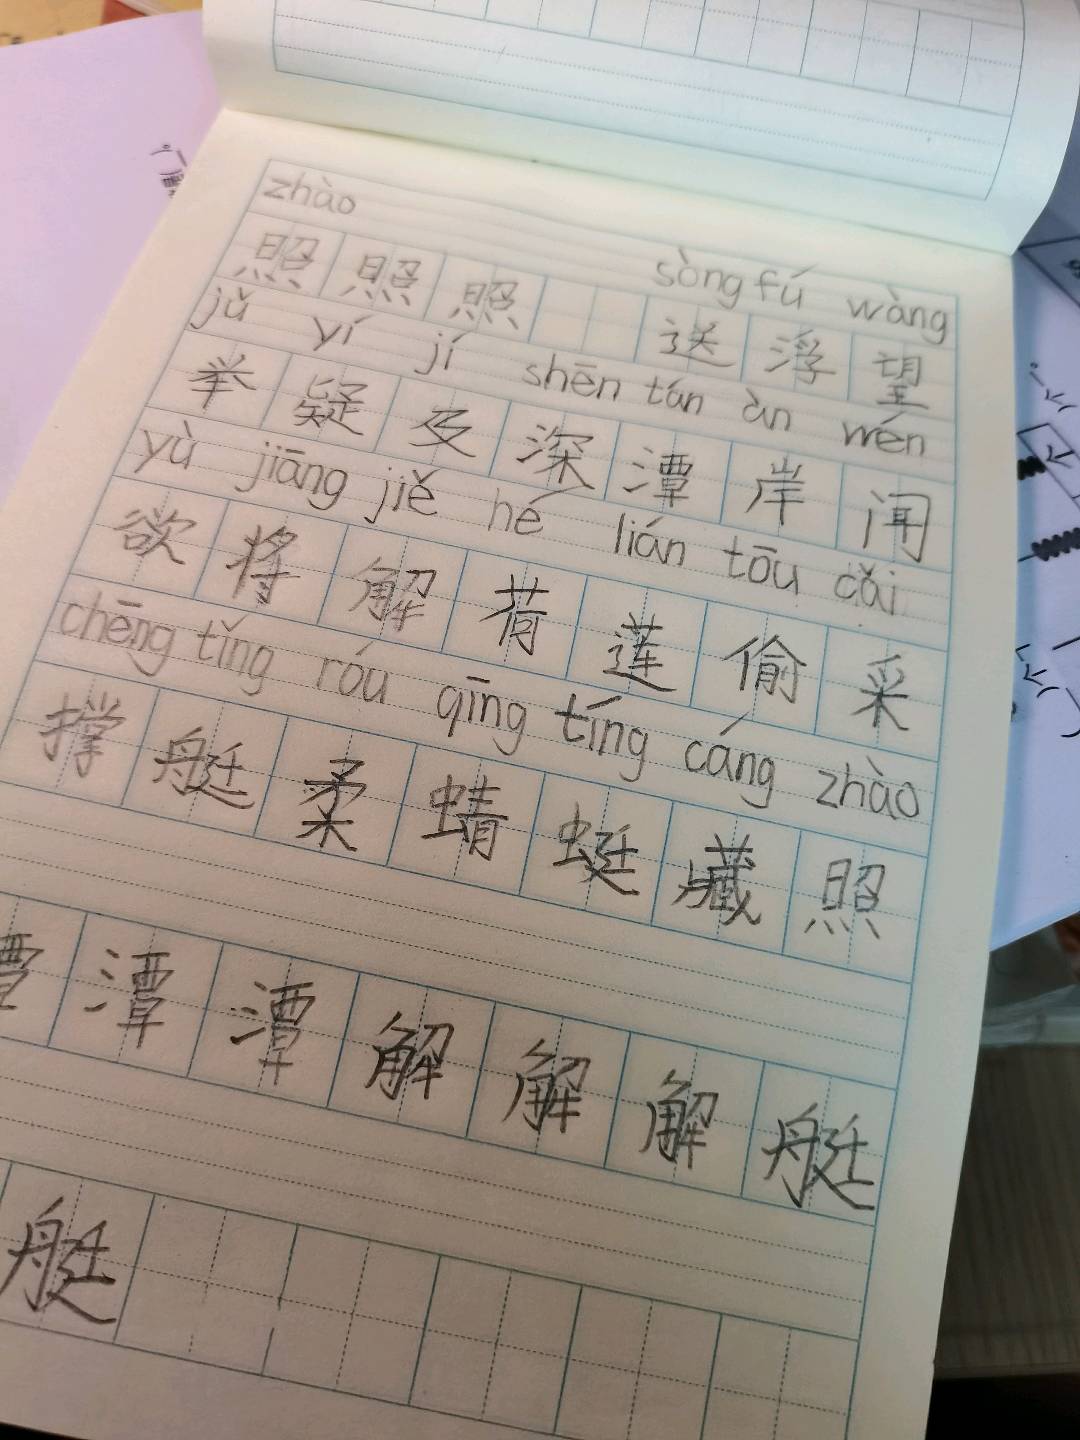 zhào
sòng fú wàng
照 照 照 送 浮 望
jǔ yí jí shēn tán àn wén
举 疑 及 深 潭 岸 闻
yù jiāng jiě hé lián tōu cǎi
欲 将 解 荷 莲 偷 采
chēng tǐng róu qīng tíng cáng zhào
撑 艇 柔 蜻 蜓 藏 照
潭 潭 潭 解 解 解 艇
艇